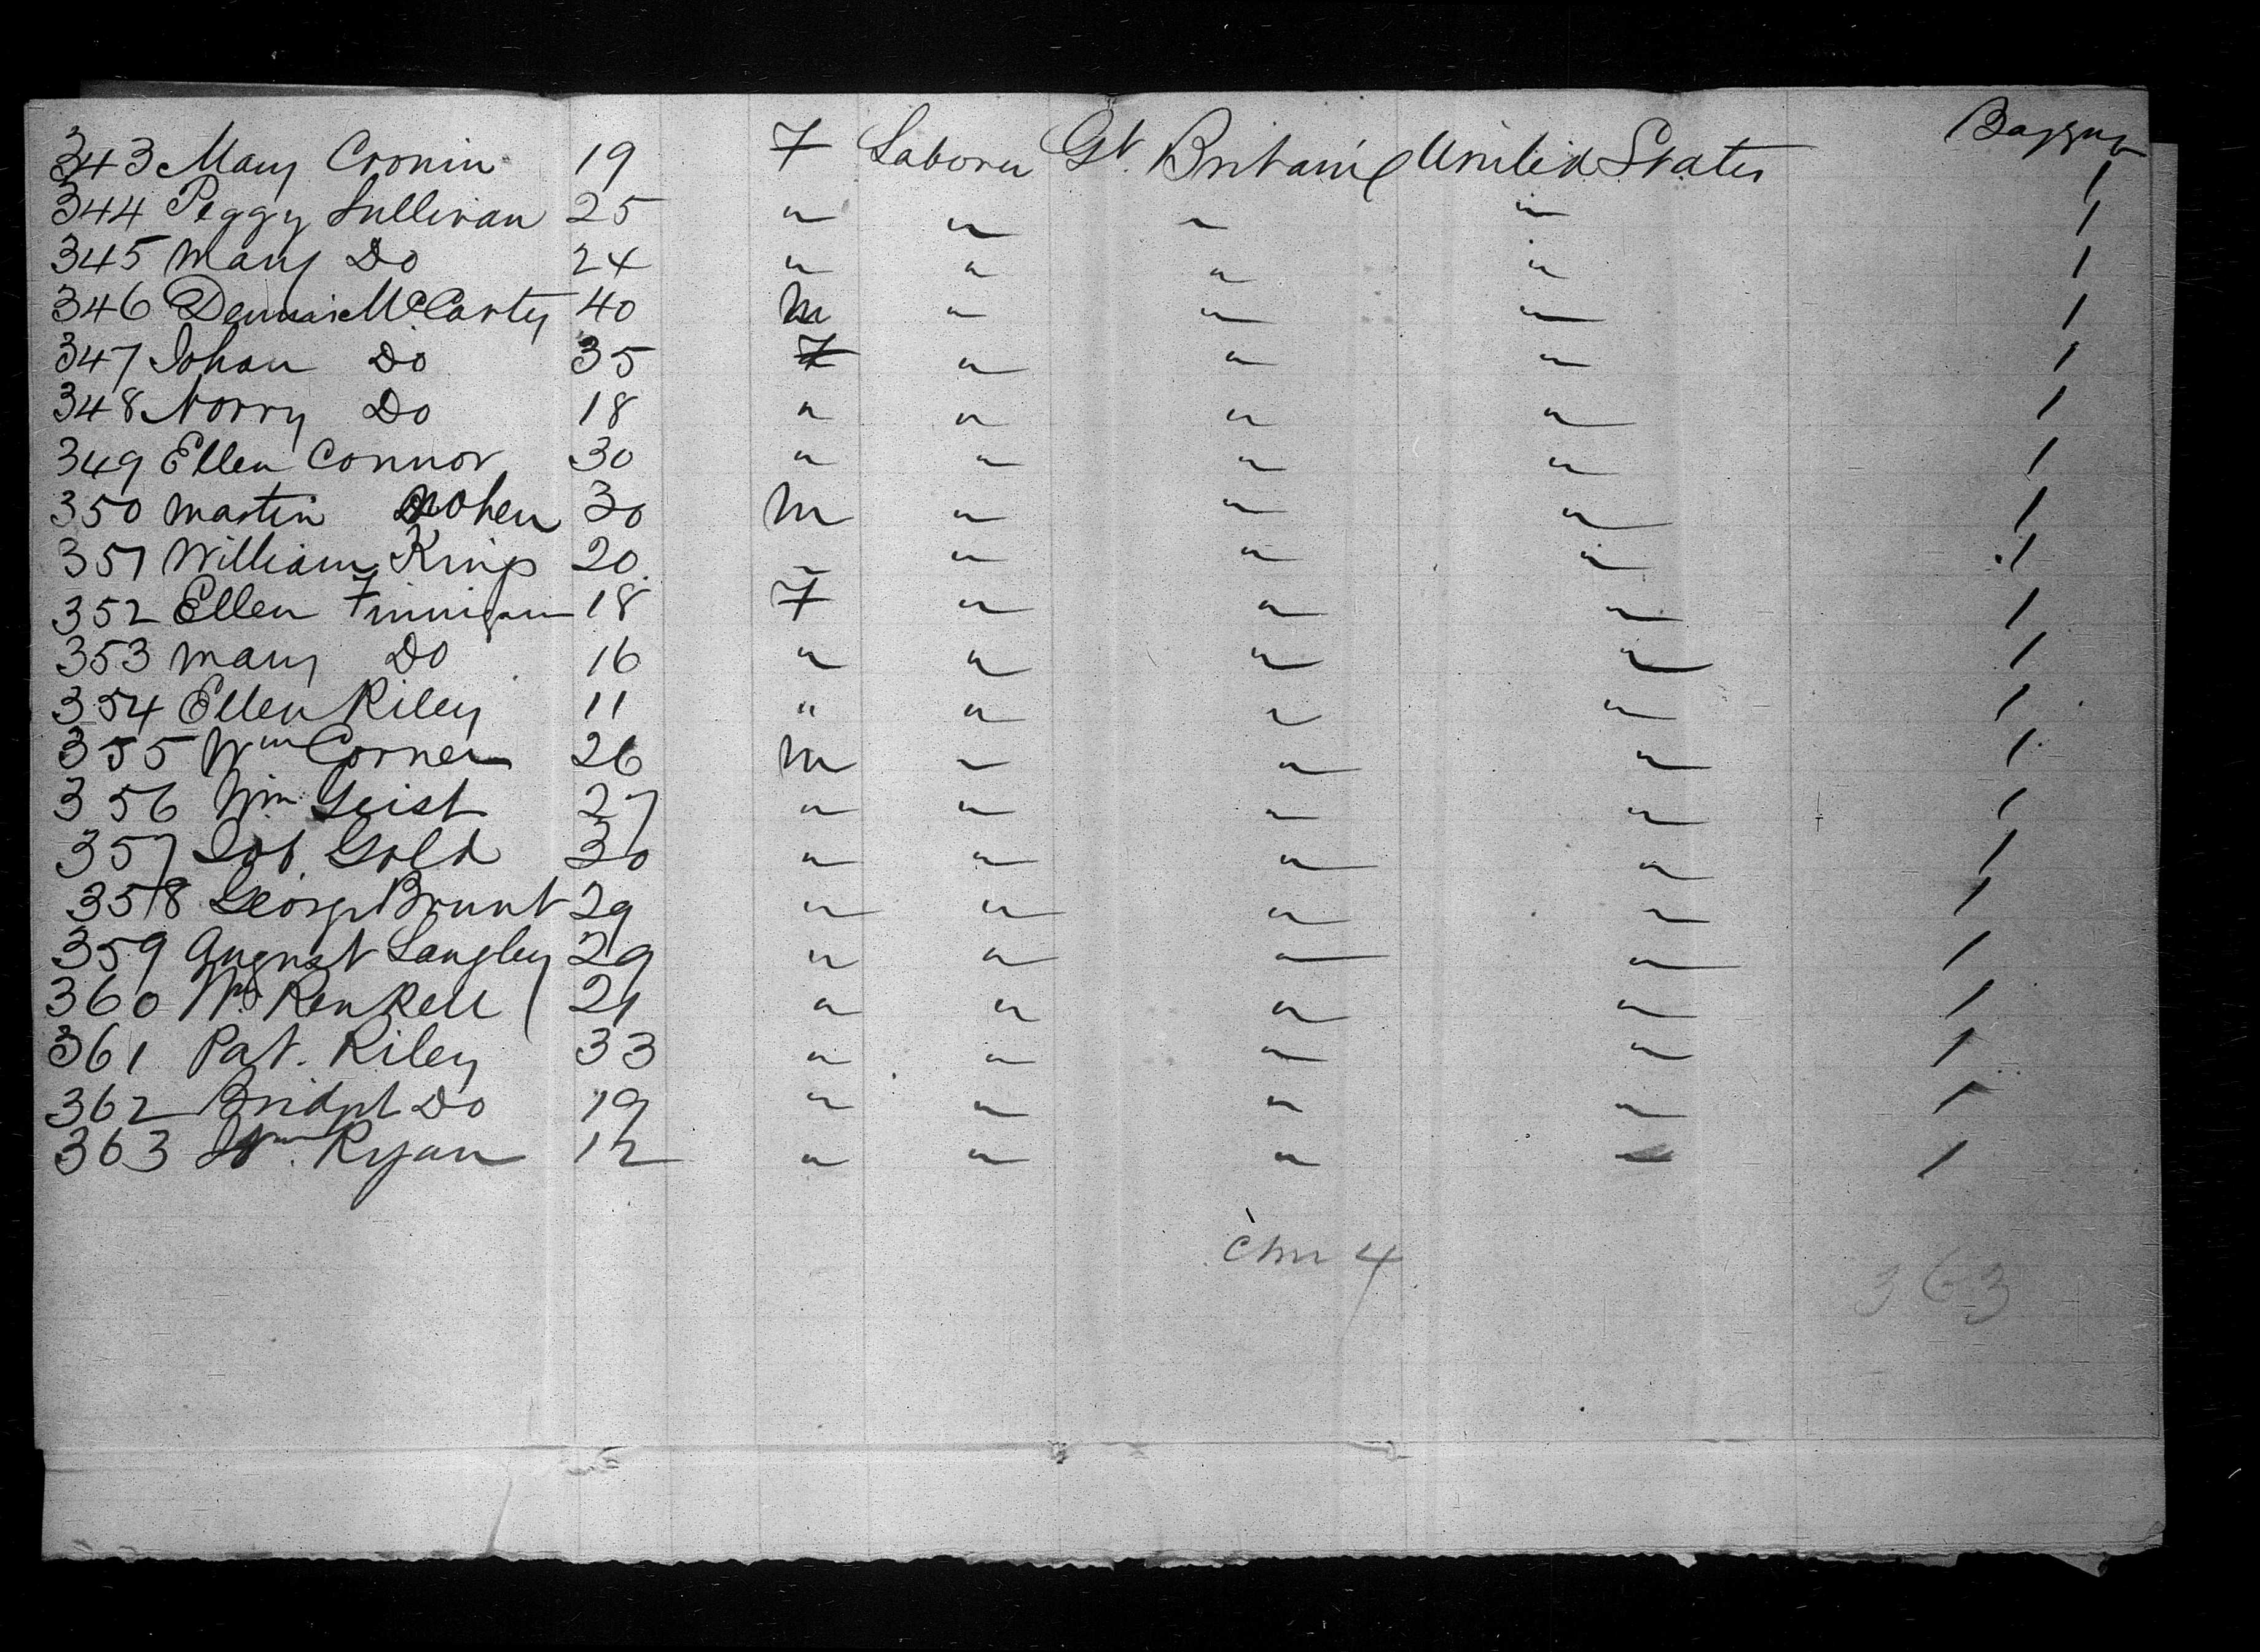 Baggage
343 Mary Cronin 19 F Laborer Gt. Britain United States 1
344 Peggy Sullivan 25 " " " " 1
345 Mary Do 24 " " " " 1
346 Dennis McCarty 40 M " " " 1
347 Johan Do 35 F " " " 1
348 Norry Do 18 " " " " 1
349 Ellen Connor 30 " " " " 1
350 Martin 30 M " " " 1
351 William King 20 " " " " 1
352 Ellen Finnigan 18 F " " " 1
353 Mary Do 16 " " " " 1
354 Ellen Riley 11 " " " " 1
355 Wm Corner 26 M " " " 1
356 Wm Geist 27 " " " " 1
357 Gold 30 " " " " 1
358 George Brunt 29 " " " " 1
359 August Langley 29 " " " " 1
360 Wm 21 " " " " 1
361 Pat. Riley 33 " " " " 1
362 Bridget Do 19 " " " " 1
363 Wm. Ryan 12 " " " " 1
4
363